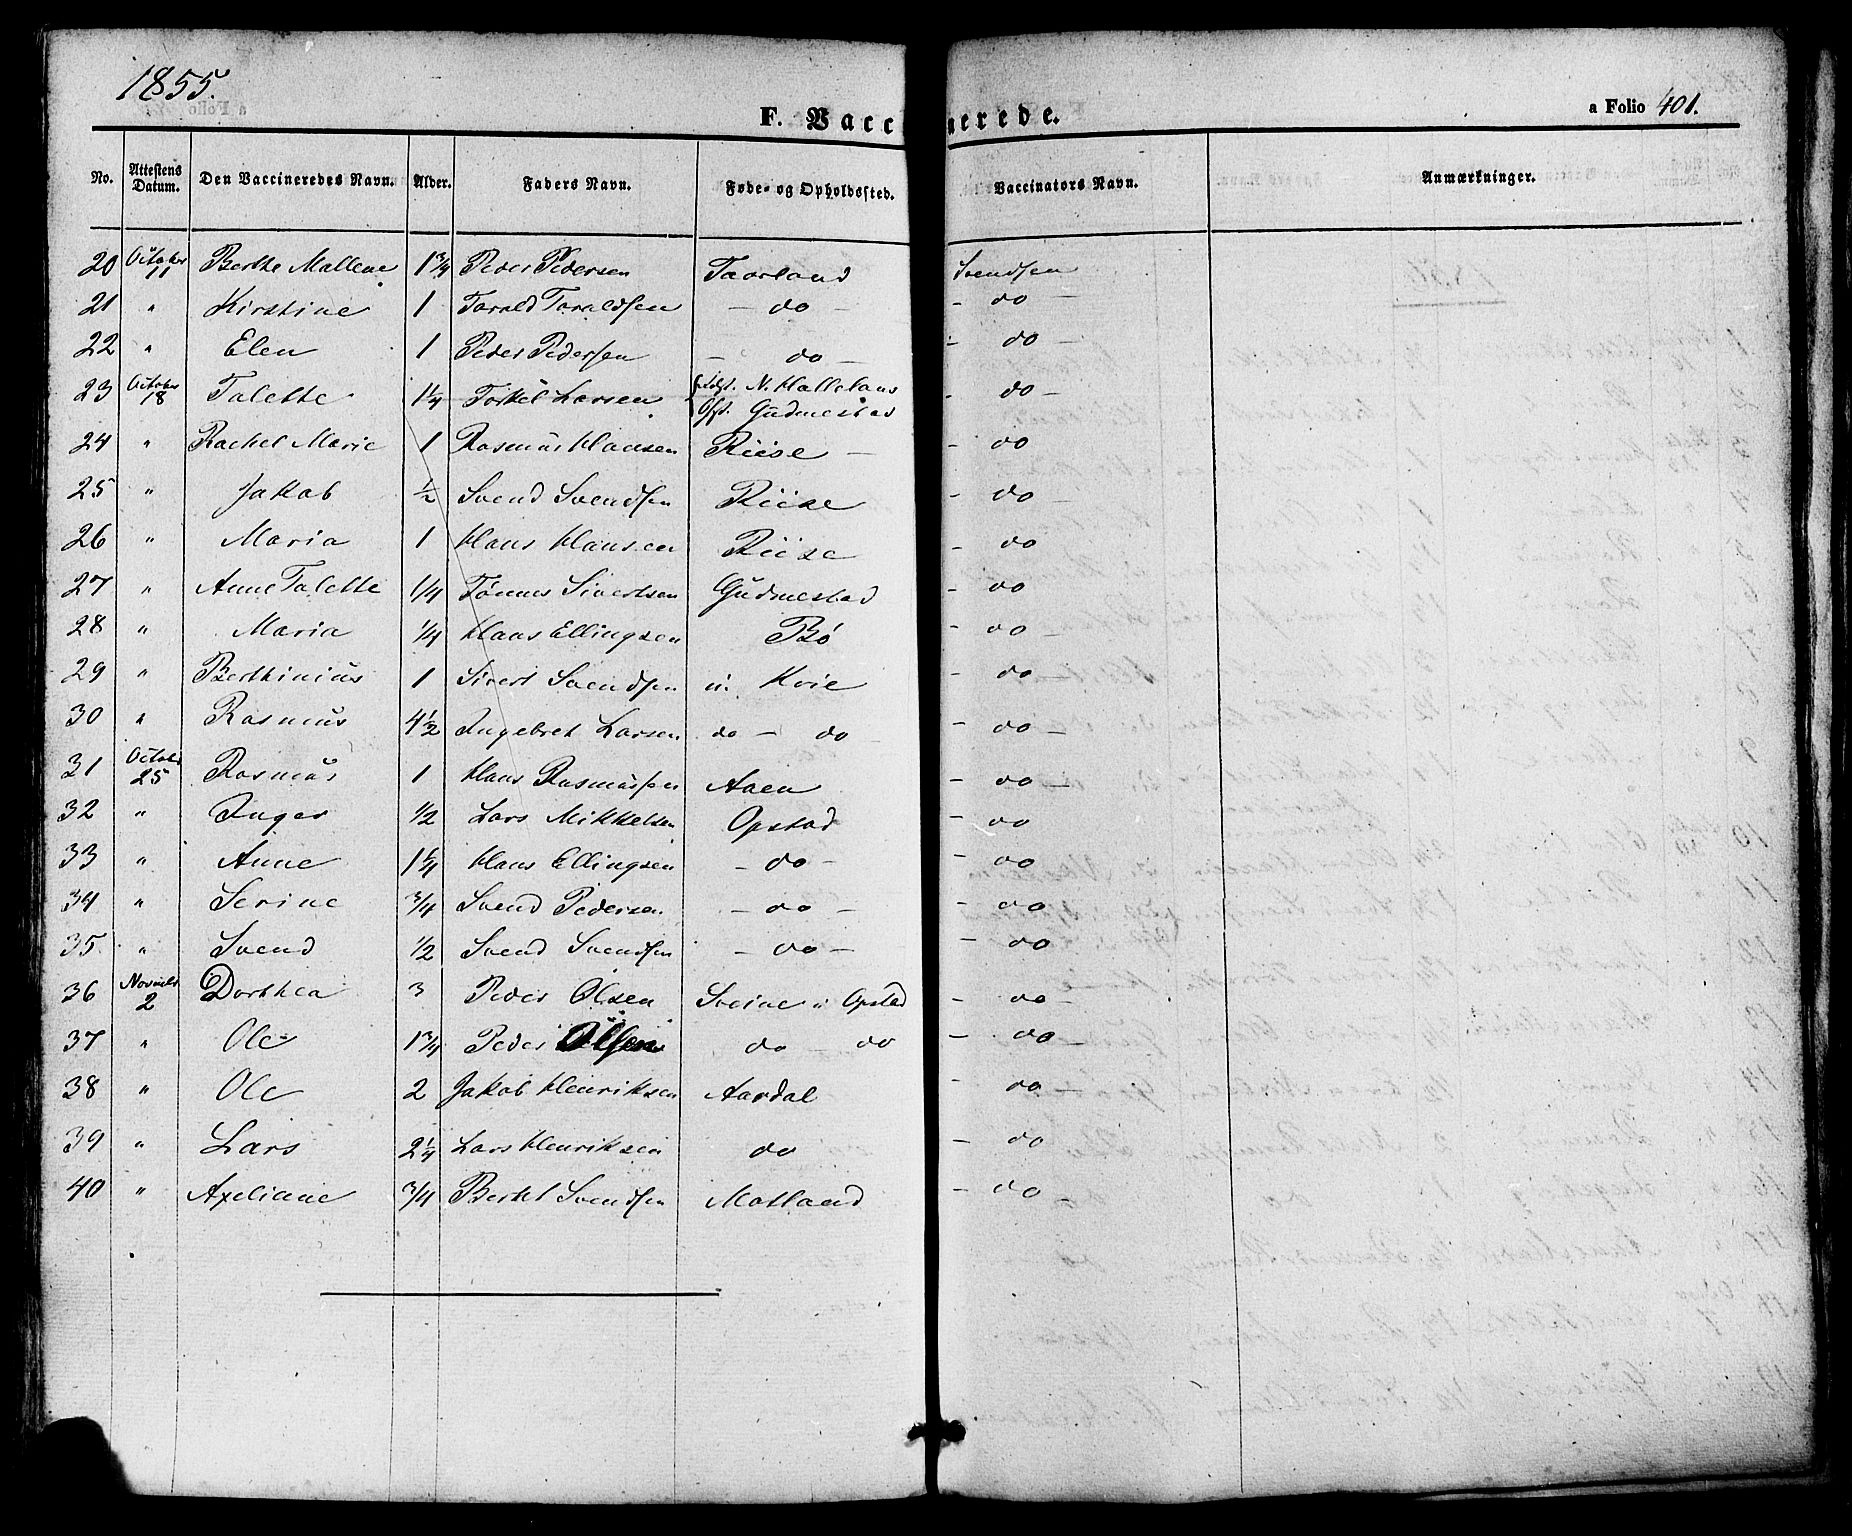 1855.
F. Vaccinerede.
a Folio 401.
No. Attestens Datum. Den Vaccineredes Navn. Alder. Faders Navn. Føde- og Opholdssted. Vaccinators Navn. Anmærkninger.
20 October 11 Berthe Mallene 1 3/4 Peder Pedersen Taarland Svendsen
21 " Kirstine 1 Tarald Taraldsen - do - - do -
22 " Elen 1 Peder Pedersen - do - - do -
23 October 18 Talette 1 1/4 Torkel Larsen fødst. N. Hallelans - do -
Ofst. Gudmestad
24 " Rachel Marie 1 Rasmus Hansen Riise - - do
25 " Jakob 1/2 Svend Svendsen Riise - do -
26 " Maria 1 Hans Hansen Riise - do
27 " Anne Talette 1/4 Tønnes Sivertsen Gudmestad - do
28 " Maria 1/4 Hans Ellingsen Bø - do -
29 " Berthinius 1 Sivert Svendsen u. Kvie - do
30 " Rasmus 4 1/2 Ingebret Larsen do - do - do -
31 October 25 Rasmus 1 Hans Rasmussen Aaen - do -
32 " Inger 1/2 Lars Mikkelsen Opstad - do
33 " Anne 1 1/4 Hans Ellingsen - do - - do
34 " Serine 3/4 Svend Pedersen - do - - do
35. " Svend 1/2 Svend Svendsen - do - - do
36 Novmbr 2 Dorthea 3 Peder Olsen Sveine u Opstad - do -
37 " Ole 1 3/4 Peder Olsen do - do - do -
38 " Ole 2 Jakob Henriksen Aardal - do -
39 " Lars 2 1/4 Lars Henriksen do - do
40 " Axeliane 3/4 Bertel Svendsen Motland - do -